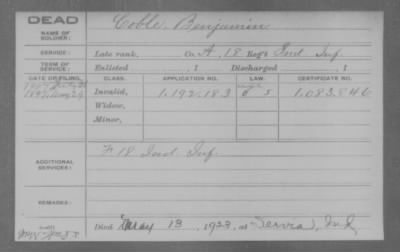 DEAD
NAME OF SOLDIER: Coble, Benjamin
SERVICE: Late rank, Co. A, 18 Reg't Ind Inf.
TERM OF SERVICE: Enlisted , 1 Discharged , 1
DATE OF FILING. CLASS. APPLICATION NO. LAW. CERTIFICATE NO.
1897 Invalid, 1.192.183 1.083.846
Widow,
Minor,
ADDITIONAL SERVICES: F 18 Ind Inf.
REMARKS:
Died May 13, 1923 at Servia, Ind